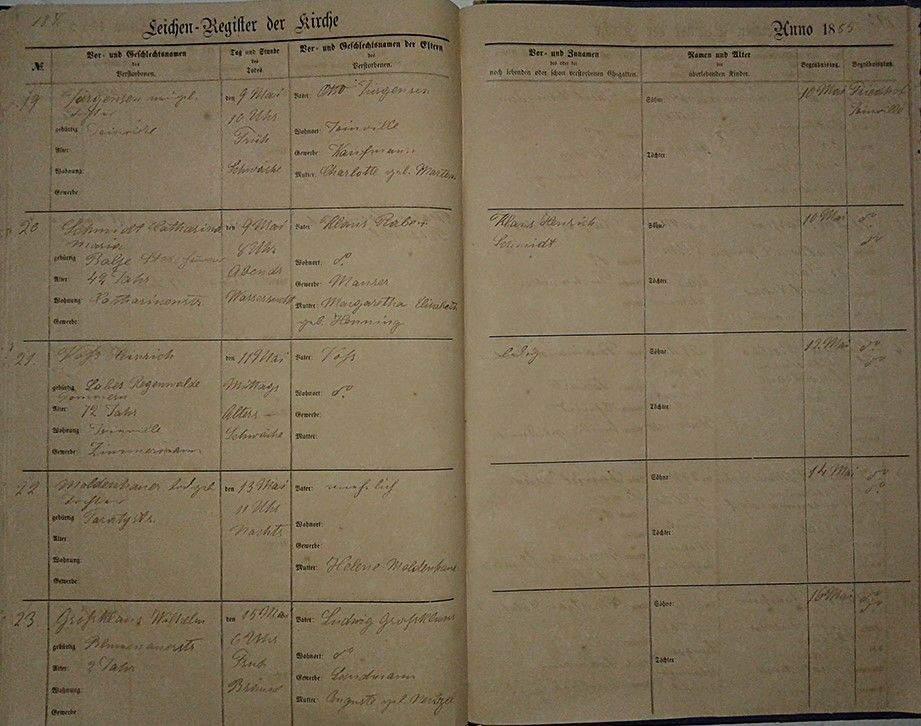 188
Leichen-Register der Kirche
Anno 1885
№
Vor- und Geschlechtsnamen
des
Verstorbenen.
Tag und Stunde
des
Todes
Vor- und Geschlechtsnamen der Eltern
des
Verstorbenen.
Vor- und Zunamen
des oder der
noch lebenden oder schon verstorbenen Ehegatten.
Namen und Alter
der
überlebenden Kinder.
Begräbnißtag.
Begräbnißplatz.
19
Jürgensen
Tochter
gebürtig Joinville
Alter:
Wohnung:
Gewerbe:
den 9 Mai
10 Uhr
Früh
Schwäche
Vater: Otto Jürgensen
Wohnort: Joinville
Gewerbe: Kaufmann
Mutter: Charlotte geb. Martens
Söhne:
Töchter:
10 Mai
Friedhof
Joinville
20
Schmidt Catharina
Maria
gebürtig Balje
Alter: 42 Jahr
Wohnung: Catharinenstr.
Gewerbe:
den 9 Mai
8 Uhr
Abends
Wassersucht
Vater: Klaus
Wohnort: do
Gewerbe: Maurer
Mutter: Margaretha Elisabeth
geb. Henning
Klaus Hinrich
Schmidt
Söhne:
Töchter:
10 Mai
do
do
21
Voß Heinrich
gebürtig Labes Regenwalde
Pommern
Alter: 72 Jahr
Wohnung: Joinville
Gewerbe: Zimmermann
den 11 Mai
Mittags
Alters-
Schwäche
Vater: Voß
Wohnort: do
Gewerbe:
Mutter:
ledig
Söhne:
Töchter:
12 Mai
do
do
22
Moldenhauer todtgeb.
Tochter
gebürtig
Alter:
Wohnung:
Gewerbe:
den 13 Mai
11 Uhr
Nachts
Vater: unehelich
Wohnort:
Gewerbe:
Mutter: Helene Moldenhauer
Söhne:
Töchter:
14 Mai
do
do
23
Großklaus Wilhelm
gebürtig
Alter: 2 Jahr
Wohnung:
Gewerbe:
den 15 Mai
6 Uhr
Früh
Bräune
Vater: Ludwig Großklaus
Wohnort: do
Gewerbe: Landmann
Mutter: Auguste geb.
Söhne:
Töchter:
16 Mai
do
do